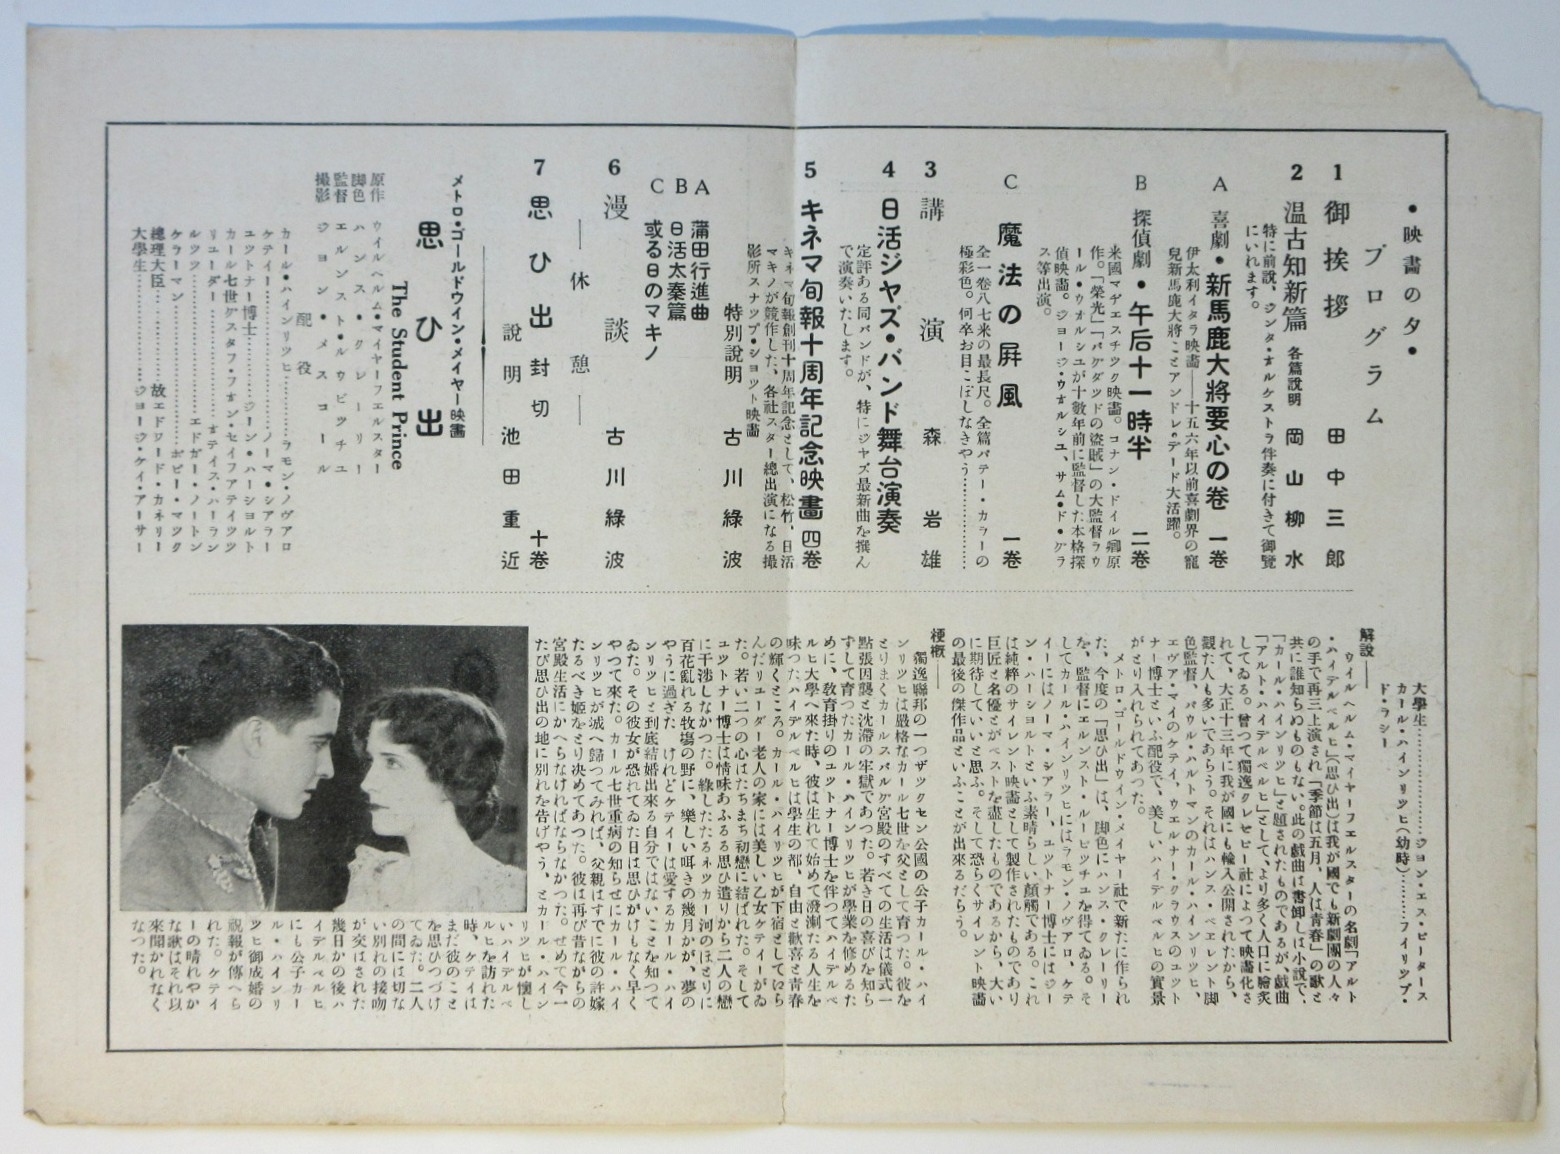 ・映畫の夕・
プログラム
1 御挨拶 田中三郎
2 温古知新篇 各篇說明 岡山柳水
特に前說、ジンタ・オルケストラ伴奏に付きて御覽
にいれます。
A 喜劇・新馬鹿大將要心の卷 一卷
伊太利イタラ映畵——十五六年以前喜劇界の寵
兒新馬鹿大將ことアンドレ・デード大活躍。
B 探偵劇・午后十一時半 二卷
米國マヂエスチツク映畵。コナン・ドイル卿原
作。「榮光」「バグダツドの盜賊」の大監督ラウ
ール・ウオルシユが十數年前に監督した本格探
偵映畵。ジヨージ・ウオルシユ、サム・ド・グラ
ス等出演。
C 魔法の屛風 一卷
全一卷八七米の最長尺。全篇パテー・カラーの
極彩色。何卒お目こぼしなきやう…………
3 講演 森岩雄
4 日活ジヤズ・バンド舞台演奏
定評ある同バンドが、特にジヤズ最新曲を撰ん
で演奏いたします。
5 キネマ旬報十周年記念映畫 四卷
キネマ旬報創刊十周年記念として、松竹、日活
マキノが競作した、各社スター總出演になる撮
影所スナツプ・シヨツト映畵
特別說明 古川綠波
A 蒲田行進曲
B 日活太秦篇
C 或る日のマキノ
6 漫談 古川綠波
——休憩——
7 思ひ出 封切 十卷
說明 池田重近
メトロ・ゴールドウイン・メイヤー映畵
思ひ出
The Student Prince
原作 ウイルヘルム・マイヤーフエルスター
脚色 ハンス・クレーリー
監督 エルンスト・ルウビツチユ
撮影 ジヨン・メスコール
配役
カール・ハインリツヒ…………ラモン・ノヴアロ
ケテイー…………ノーマ・シアラー
ユツトナー博士…………ジーン・ハーシヨルト
カール七世…グスタフ・フオン・セイフアテイツツ
リユーダー…………オテイス・ハーラン
ルツツ…………エドガー・ノートン
ケラーマン…………ボビー・マツク
總理大臣…………故エドワード・カネリー
大學生…………ジヨージ・ケイ・アーサー
大學生…………ジヨン・エス・ピータース
カール・ハインリツヒ(幼時)………フイリツプ・
ド・ラシー
解說——
ウイルヘルム・マイヤーフエルスターの名劇「アルト
・ハイデルベルヒ」(思ひ出)は我が國でも新劇團の人々
の手で再三上演され「季節は五月、人は靑春」の歌と
共に誰知らぬものもない。此の戯曲は書卸しは小說で、
「カール・ハインリツヒ」と題されたものであるが、戯曲
「アルト・ハイデルベルヒ」として、より多く人口に膾炙
してゐる。曾つて獨逸クレセビー社によつて映畵化さ
れて、大正十三年に我が國にも輸入公開されたから、
觀た人も多いであらう。それはハンス・ベエレント脚
色監督、パウル・ハルトマンのカール・ハインリツヒ、
エヴア・マイのケテイ、ウエルナー・クラウスのユツト
ナー博士といふ配役で、美しいハイデルベルヒの實景
がとり入れられてあつた。
メトロ・ゴールドウイン・メイヤー社で新たに作られ
た、今度の「思ひ出」は、脚色にハンス・クレーリー
を、監督にエルンスト・ルービツチユを得てゐる。そ
してカール・ハインリツヒにはラモン・ノヴアロ、ケテ
イーにはノーマ・シアラー、ユツトナー博士にはジー
ン・ハーシヨルトといふ素晴らしい顏觸である。これ
は純粹のサイレント映畵として製作されたものであり
巨匠と名優とがベストを盡したものであるから、大い
に期待していいと思ふ。そして恐らくサイレント映畵
の最後の傑作品といふことが出來るだらう。
梗槪——
獨逸聯邦の一つザツクセン公國の公子カール・ハイ
ンリツヒは嚴格なカール七世を父として育つた。彼を
とりまくカールスバルグ宮殿のすべての生活は儀式一
點張因襲と沈滯の牢獄であつた。若き日の喜びを知ら
ずして育つたカール・ハインリツヒが學業を修めるた
めに、敎育掛りのユツトナー博士を伴つてハイデルベ
ルヒ大學へ來た時、彼は生れて始めて潑溂たる人生を
味つた。ハイデルベルヒは學生の都、自由と歡喜と靑春
の輝くところ。カール・ハイリツヒが下宿としていら
んだリユーダー老人の家には美しい乙女ケテイーがゐ
た。若い二つの心はたちまち初戀に結ばれた。そして
ユツトナー博士は情味あふるる思ひ遣りから二人の戀
に干渉しなかつた。綠したたるネツカー河のほとりに
百花亂れる牧場の野に、樂しい囁きの幾月かが、夢の
やうに過ぎた。けれどケテイーは愛するカール・ハイ
ンリツヒと到底結婚出來る自分ではないことを知つて
ゐた。その彼女が恐れてゐた日は思ひがけもなく早く
やつて來た。カール七世重病の知らせにカール・ハイ
ンリツヒが城へ歸つてみれば、父親はすでに彼の許嫁
たるべき姬をとり決めてあつた。彼は再び昔ながらの
宮殿生活にかへらなければならなかつた。せめて今一
たび思ひ出の地に別れを告げやう、とカール・ハイン
リツヒが懷し
いハイデルベ
ルヒを訪れた
時、ケテイは
まだ彼のこと
を思ひつづけ
てゐた。二人
の間には切な
い別れの接吻
が交はされた
幾日かの後ハ
イデルベルヒ
にも公子カー
ル・ハインリ
ツヒ御成婚の
祝報が傳へら
れた。ケテイ
ーの晴れやか
な歌はそれ以
來聞かれなく
なつた。